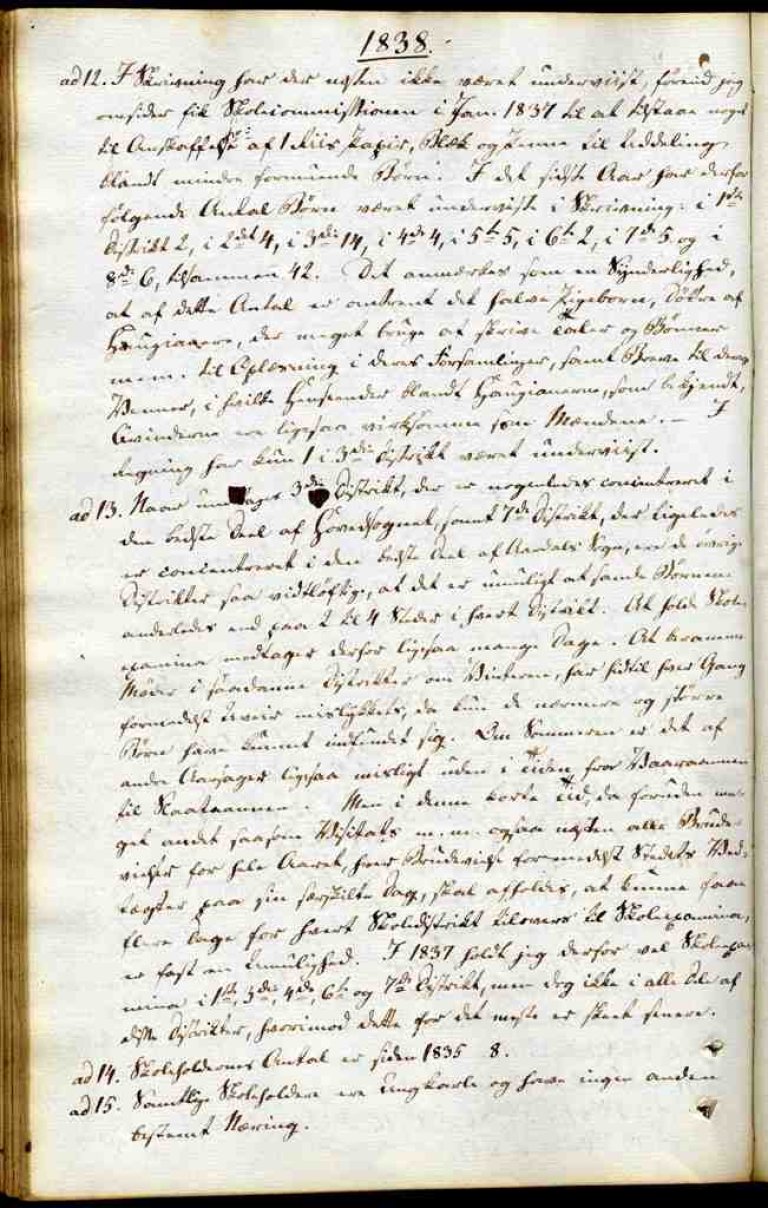 1838.
ad 12. I Skrivning har der næsten ikke været underviist, førend jeg
omsider fik Skolecommissionen i Jan. 1837 til at tilstaae noget
til Anskaffelse af 1 Riis Papir, Blæk og Penne til Uddeling
blandt mindre formuende Børn. I det sidste Aar har derfor
følgende Antal Børn været underviste i Skrivning: i 1ste
Distrikt 2, i 2det 4, i 3die 14, i 4de 4, i 5te 5, i 6te 2, i 7de 5 og i
8de 6, tilsammen 42. Det anmærkes som en Synderlighed,
at af dette Antal er omtrent det halve Pigebørn, Døttre af
Haugianere, der meget bruge at skrive Taler og Bønner
m.m. til Oplæsning i deres Forsamlinger, samt Breve til deres
Venner, i hvilke Henseender blandt Haugianerne, som bekjendt,
Qvinderne ere ligesaa virksomme som Mændene. — I
Regning har kun 1 i 3die Distrikt været underviist.
ad 13. Naar undtages 3die Distrikt, der er nogenledes concentreret i
den bedste Deel af Hovedsognet, samt 7de Distrikt, der ligeledes
er concentreret i den bedste Deel af Aardals Sogn, ere de øvrige
Distrikter saa vidtløftige, at det er umuligt at samle Børnene
anderledes end paa 2 til 4 Steder i hvert Distrikt. At holde Skole-
examina medtager derfor ligesaa mange Dage. At beramme
Møder i saadanne Distrikter om Vinteren, har hidtil hver Gang
formedelst Uveir mislykkets, da kun de nærmere og større
Børn have kunnet indfundet sig. Om Sommeren er det af
andre Aarsager ligesaa misligt uden i Tiden fra Vaaraannen
til Slaataannen. Men i denne korte Tid, da foruden me-
get andet saasom Visitats m.m. ogsaa næsten alle Brude-
vielser for hele Aaret, hver Brudevielse formedelst Stedets Ved-
tægter paa sin særskilte Dag, skal afholdes, at kunne faae
flere Dage for hvert Skoledistrikt tilovers til Skoleexamina,
er fast en Umulighed. I 1837 holdt jeg derfor vel Skoleexa-
mina i 1ste, 3die, 4de, 6te og 7de Distrikt, men dog ikke i alle Dele af
disse Distrikter, hvorimod dette for det meste er skeet senere.
ad 14. Skoleholdernes Antal er siden 1835 8.
ad 15. Samtlige Skoleholdere ere Ungkarle og have ingen anden
bestemt Næring.